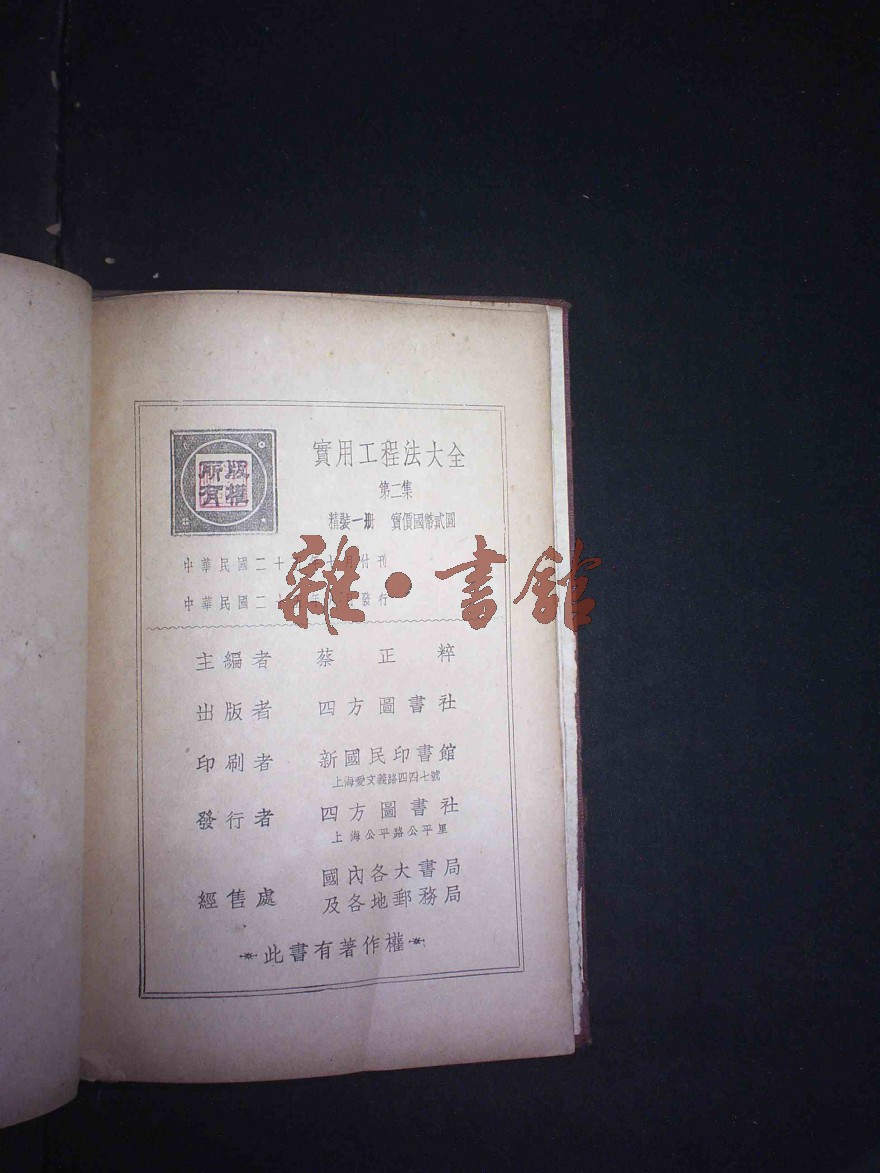 版權
所有
實用工程法大全
第二集
精裝一册 實價國幣貳圓
中華民國二十 月付刊
中華民國二十 發行
雜·書館
主編者 蔡正粹
出版者 四方圖書社
印刷者 新國民印書館
上海愛文義路四四七號
發行者 四方圖書社
上海公平路公平里
經售處 國內各大書局
及各地郵務局
此書有著作權